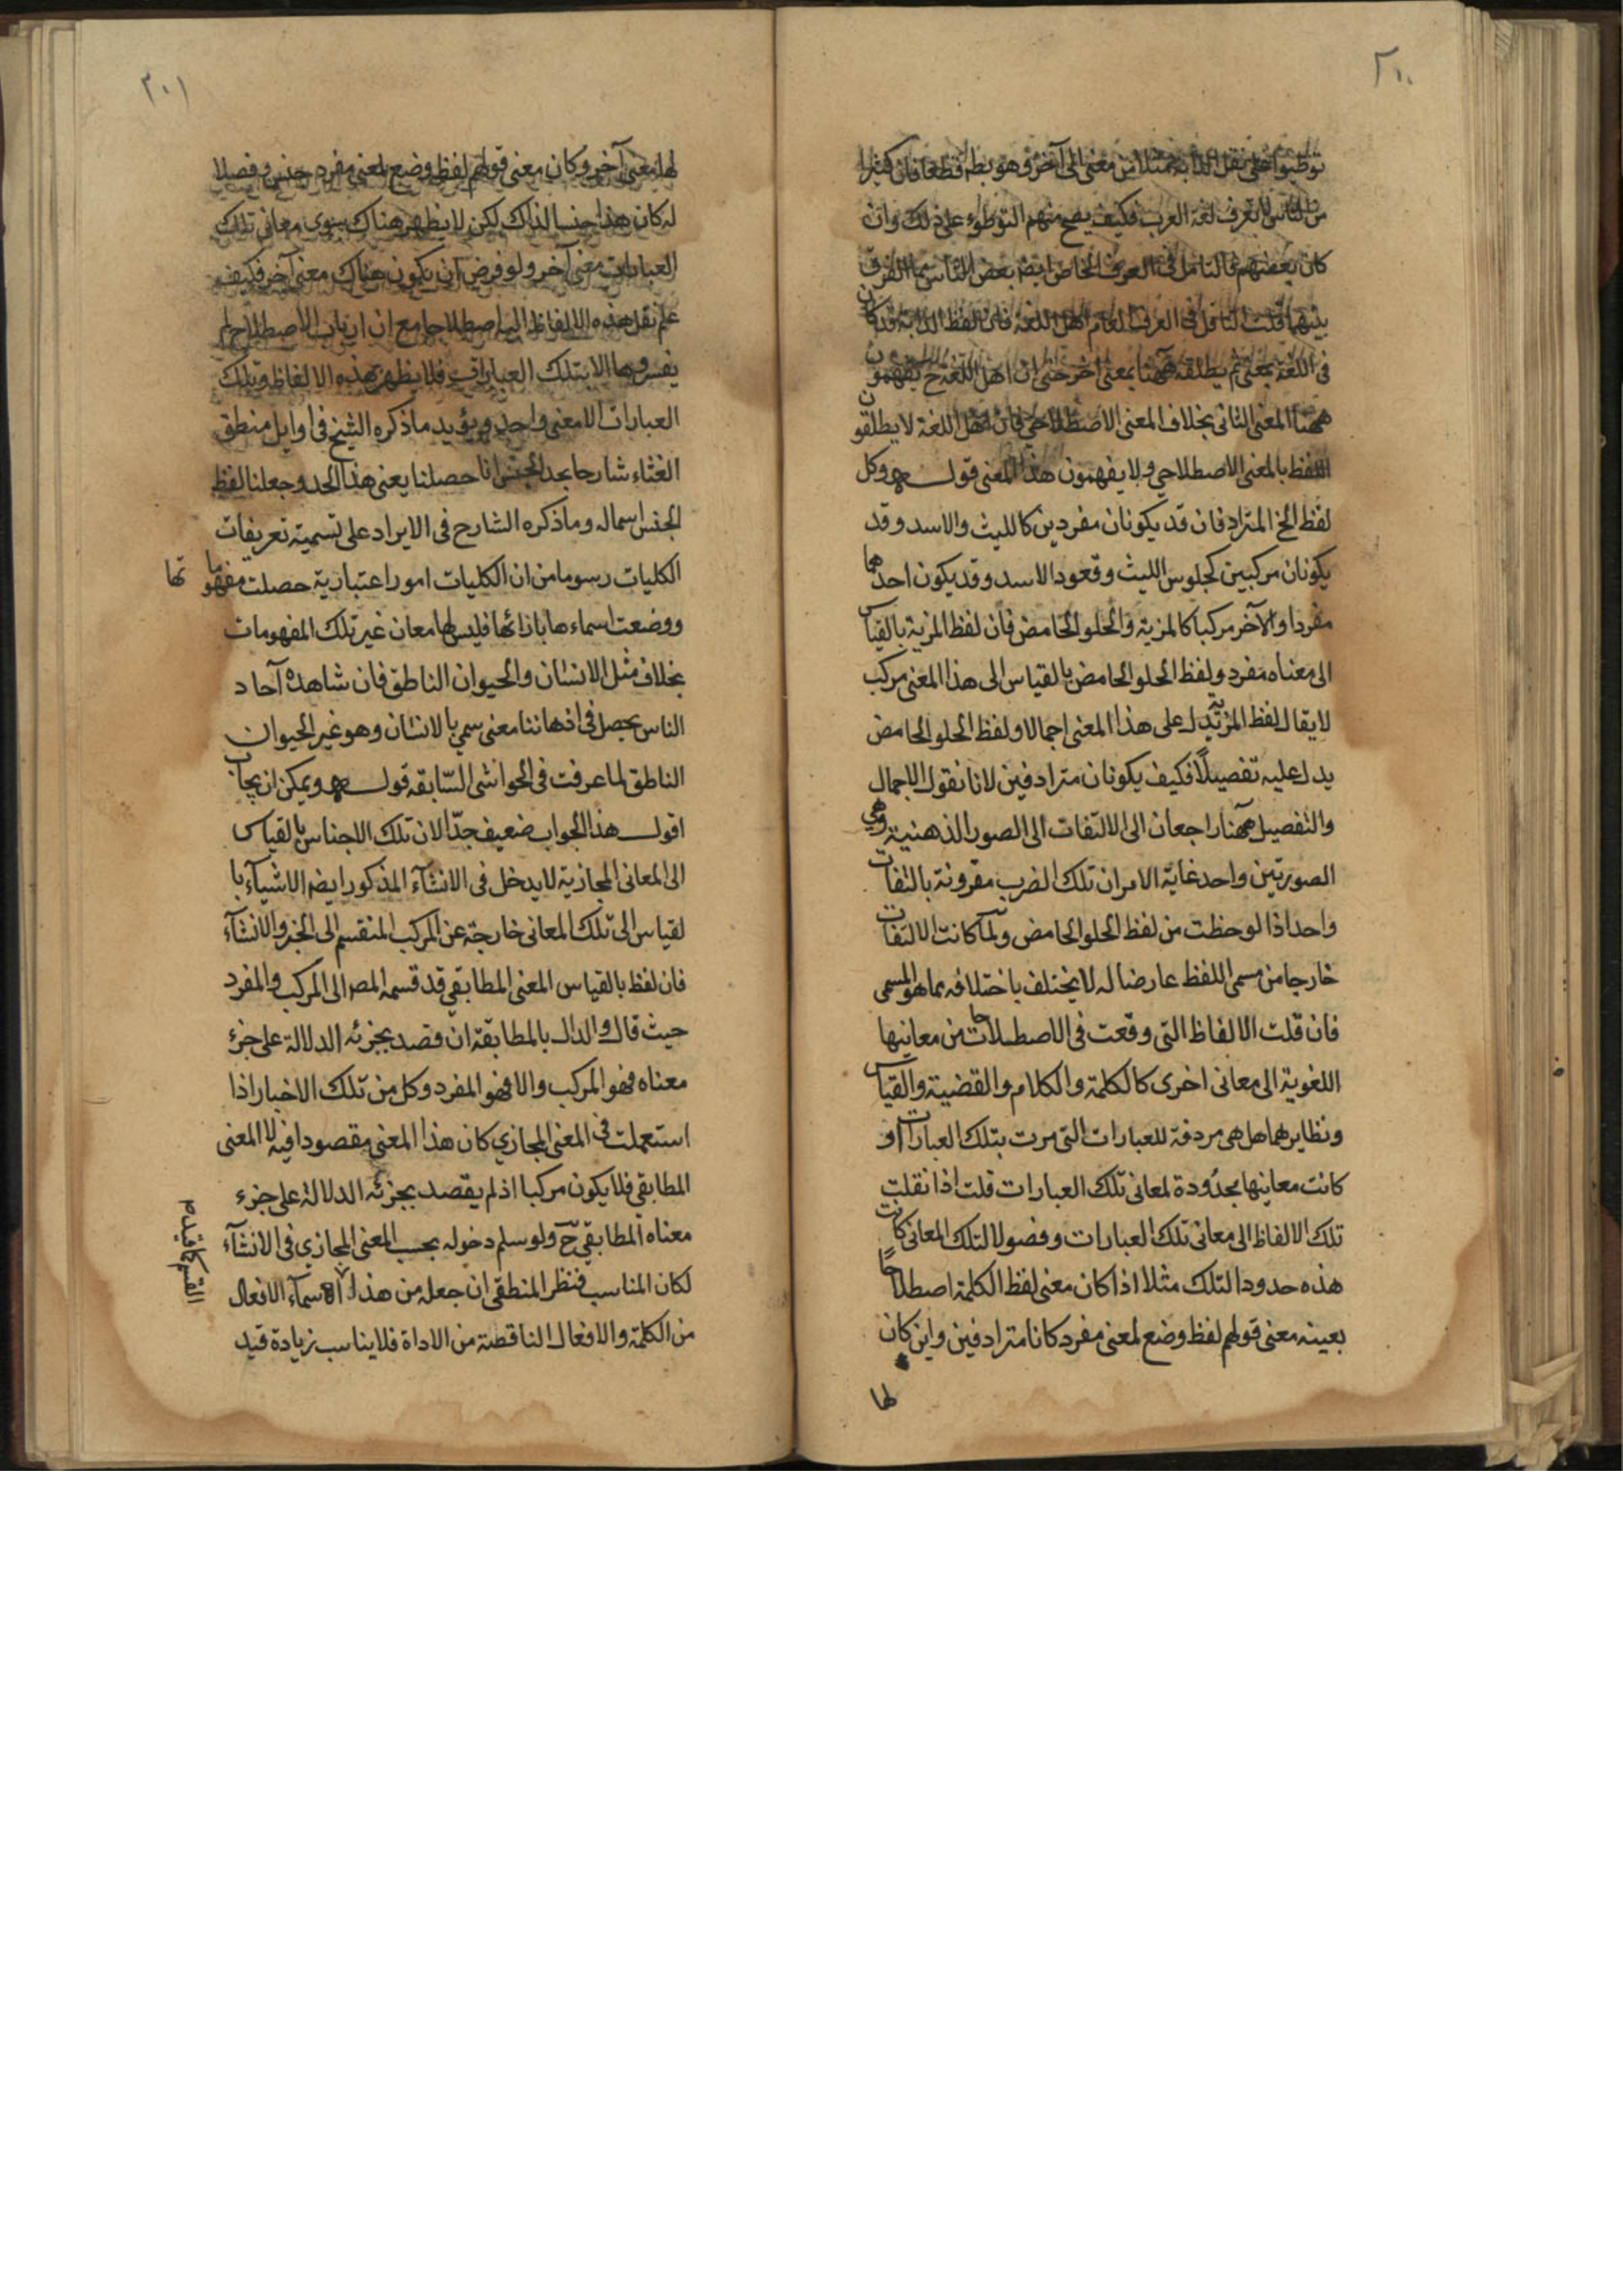 ٢٠٠
توطبوا على نقل الدابة مثلا من معنى الى آخر وهو بط قطعا فان كثيرا
من الناس لا يعرف لغة العرب فكيف يصح منهم التوطؤ على ذلك وان
كان بعضهم فالناقل في العرف الخاص ايضا بعض الناس فما الفرق
بينهما قلت الناقل في العرف العام اهل اللغة فان لفظ الدابة قد كان
في اللغة بمعنى ثم يطلقه ههنا بمعنى اخر حتى ان اهل اللغة ح يفهمون
ههنا المعنى الثانى بخلاف المعنى الاصطلاحي فان اهل اللغة لا يطلقون
اللفظ بالمعنى الاصطلاحي ولا يفهمون هذا المعنى قوله وكل
لفظ الخ المترادفان قد يكونان مفردين كالليث والاسد وقد
يكونان مركبين كجلوس الليث وقعود الاسد وقد يكون احدهما
مفردا والآخر مركبا كالمزية والحلو الحامض فان لفظ المزية بالقياس
الى معناه مفرد ولفظ الحلو الحامض بالقياس الى هذا المعنى مركب
لا يقال لفظ المزية يدل على هذا المعنى اجمالا ولفظ الحلو الحامض
يدل عليه تفصيلاً فكيف يكونان مترادفين لانا نقول الاجمال
والتفصيل ههنا راجعان الى الالتفات الى الصور الذهنية وهي
الصورتين واحد غاية الامر ان تلك الضرب مقرونة بالتفات
واحد اذا لوحظت من لفظ الحلو الحامض ولما كانت الالتفات
خارجا من مسمى اللفظ عارضا له لا يختلف باختلافه بما هو المسمى
فان قلت الالفاظ التى وقعت فى الاصطلاحات من معانيها
اللغوية الى معانى اخرى كالكلمة والكلام والقضية والقياس
ونظايرهما هل هى مردفة للعبارات التى مرت بتلك العبارات او
كانت معانيها محدُودة لمعانى تلك العبارات قلت اذا نقلت
تلك الالفاظ الى معانى تلك العبارات وفصولا لتلك المعانى كانت
هذه حدودا لتلك مثلا اذا كان معنى لفظ الكلمة اصطلاحاً
بعينه معنى قولهم لفظ وضع لمعنى مفرد كانا مترادفين وإن كان
لها
٢٠١
لها معنى آخر وكان معنى قولهم لفظ وضع لمعنى مفرد جنس وفصلا
له كان هذا جنسا لذاك لكن لا يظهر هناك سوى معانى تلك
العبارات معنى آخر ولو فرض ان يكون هناك معنى آخر فكيف
علم نقل هذه الالفاظ اليه اصطلاحا مع ان ارباب الاصطلاح لم
يفسروها الا بتلك العبارات فلا يظهر بهذه الالفاظ وتلك
العبارات الا معنى واحد ويؤيد ما ذكره الشيخ فى اوايل منطق
الشفاء شارحا بحد الجنس انا حصلنا يعنى هذا الحد وجعلنا لفظ
الجنس اسما له وما ذكره الشارح فى الايراد على تسمية تعريفات
الكليات رسوما من ان الكليات امور اعتبارية حصلت مفهوما تها
ووضعت اسماءها بازائها فليس لها معان غير تلك المفهومات
بخلاف مثل الانسان والحيوان الناطق فان شاهده آحاد
الناس يحصل فى اذهاننا معنى سمي بالانسان وهو غير الحيوان
الناطق لما عرفت فى الحواشى السّابقه قوله ويمكن ان يجاب
اقول هذا الجواب ضعيف جدّا لان تلك الاجناس بالقياس
الى المعانى المجازية لا يدخل فى الانشآء المذكور ايضا الاشيآء با
لقياس الى تلك المعانى خارجة عن المركب المنقسم الى الخبر والانشآء
فان لفظ بالقياس المعنى المطابقى قد قسمه المص الى المركب والمفرد
حيث قال والدال بالمطابقة ان قصد بجزئه الدلالة على جزء
معناه فهو المركب والا فهو المفرد وكل من تلك الاخبار اذا
استعملت فى المعنى المجازي كان هذا المعنى مقصودا فيه لا المعنى
المطابقى فلا يكون مركبا اذ لم يقصد بجزئه الدلالة على جزء
معناه المطابقى ح ولو سلم دخوله بحسب المعنى المجازي فى الانشآء
لكان المناسب فنظر المنطقى ان جعله من هذا الاسمآء الافعال
من الكلمة والافعال الناقصة من الاداة فلا يناسب زيادة قيد